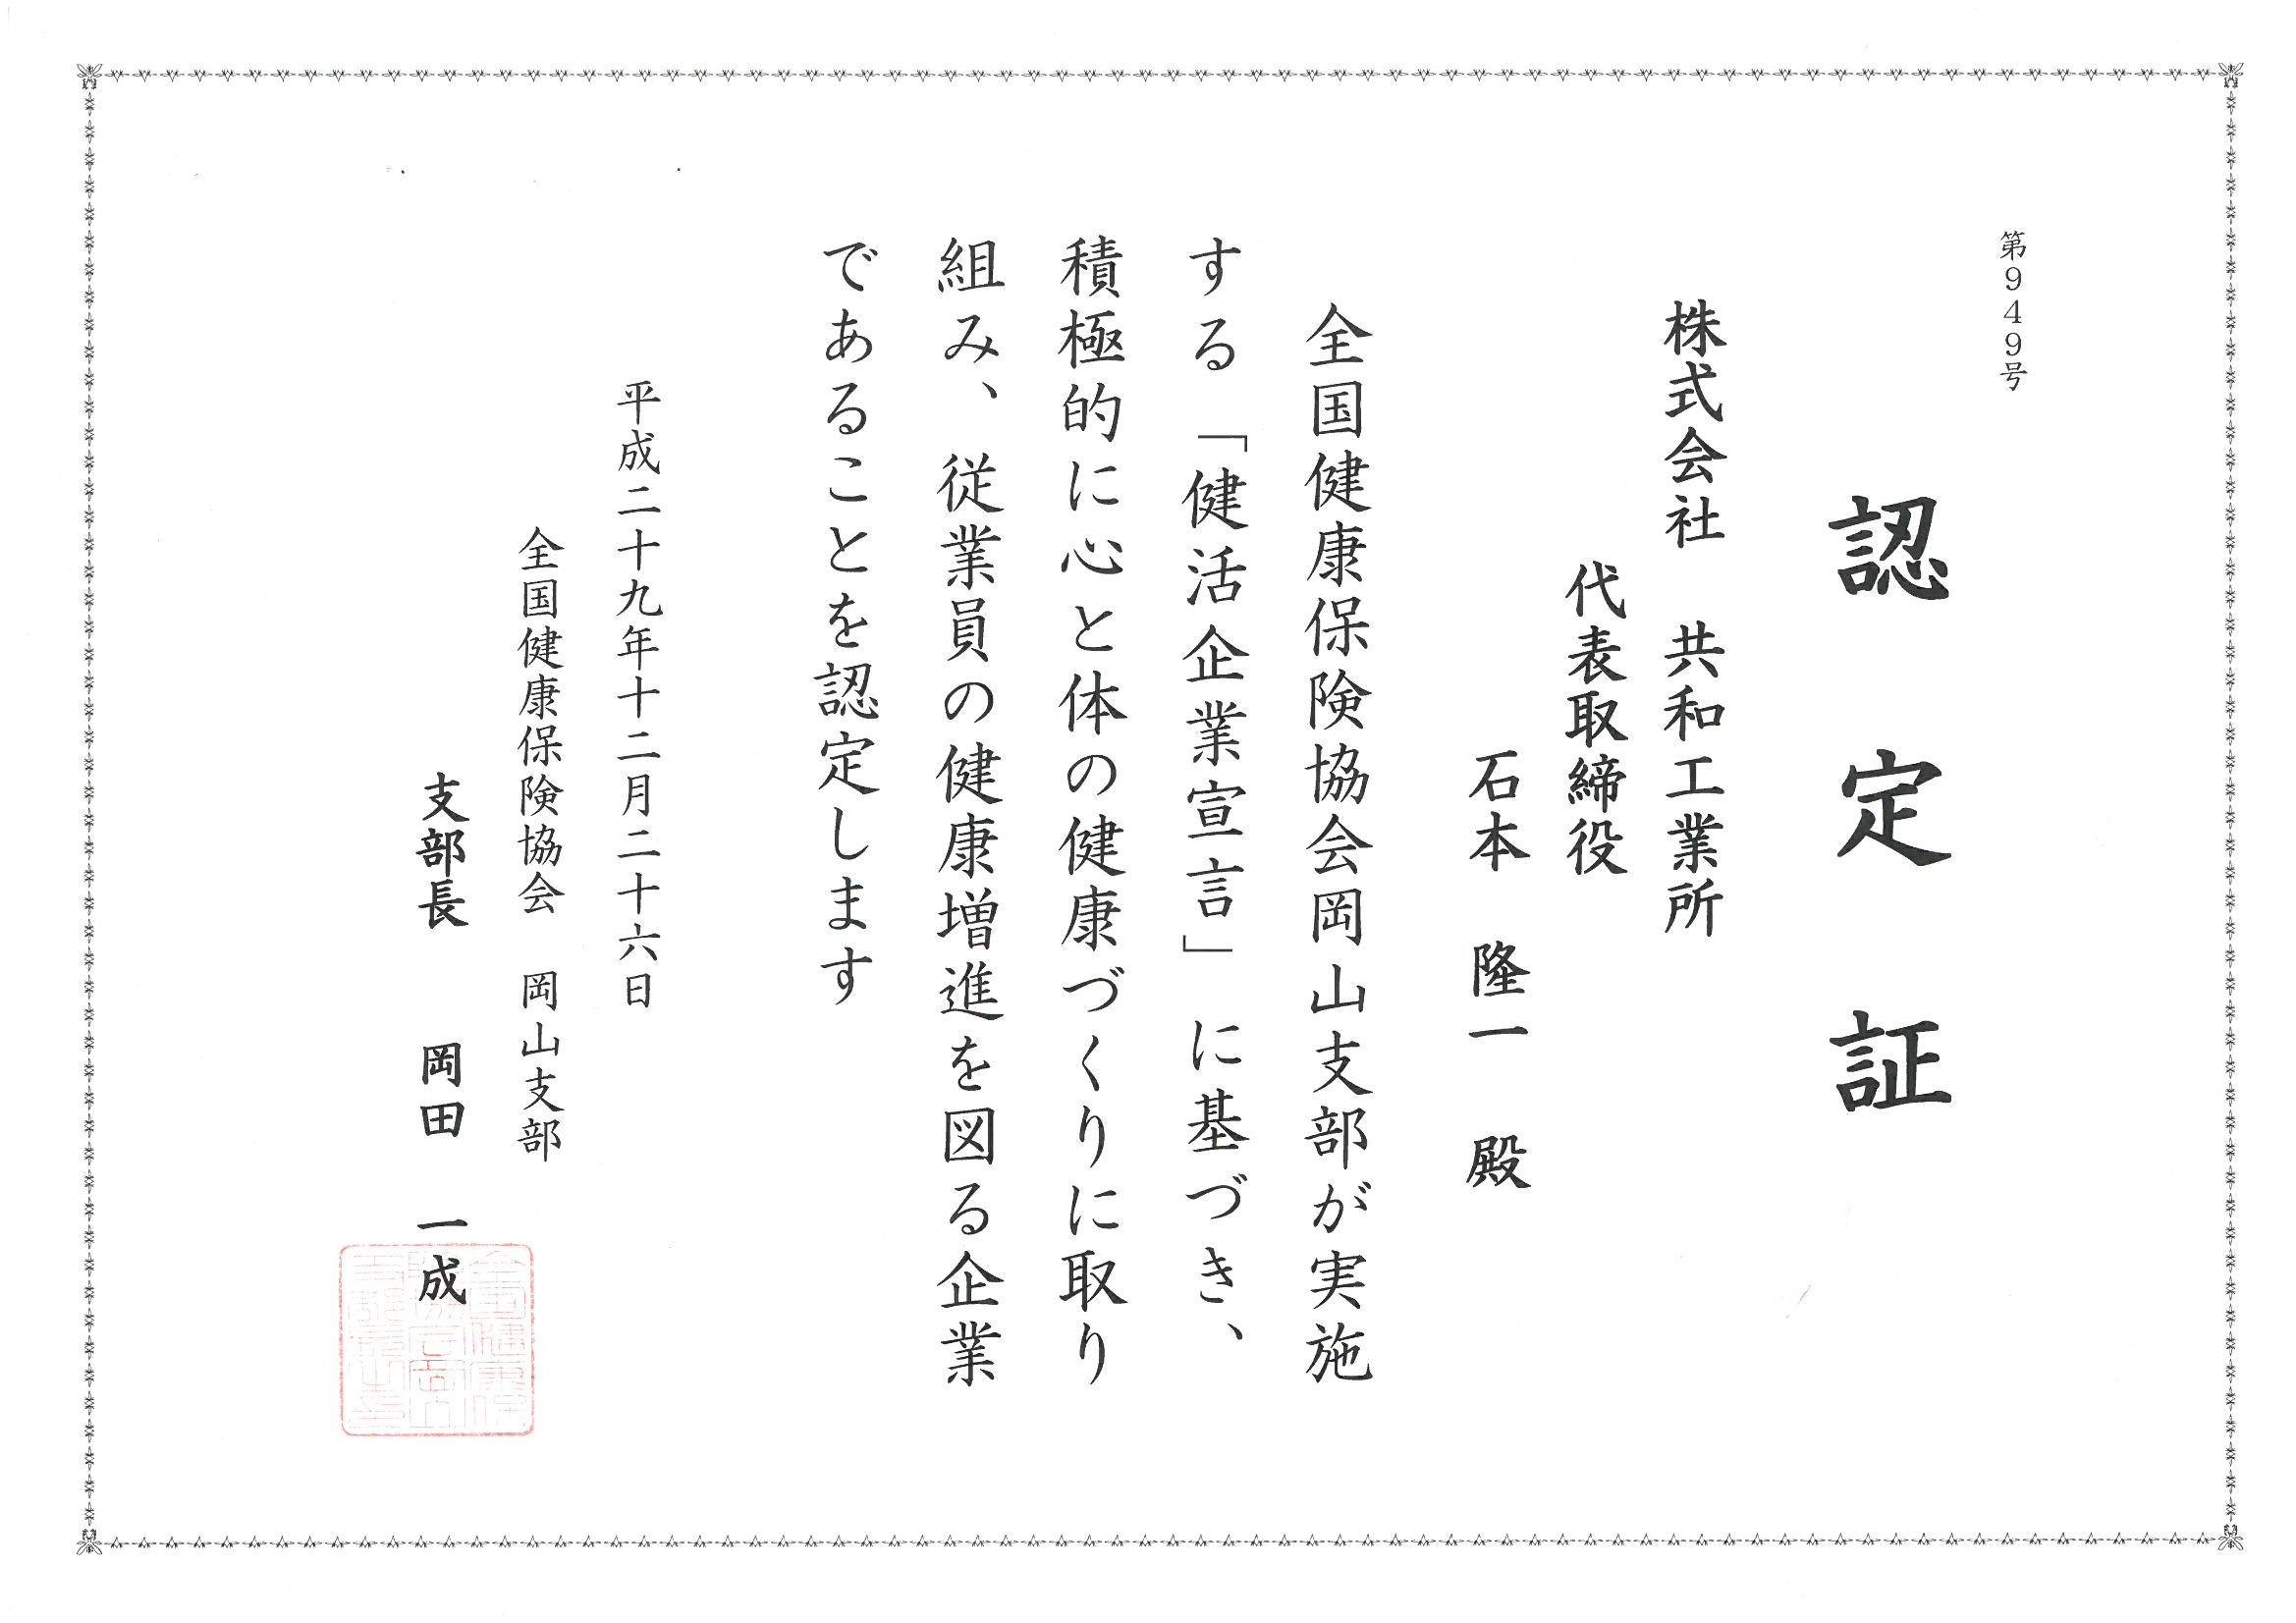 第949号
認定証
株式会社 共和工業所
代表取締役
石本 隆一 殿
全国健康保険協会岡山支部が実施
する「健活企業宣言」に基づき、
積極的に心と体の健康づくりに取り
組み、従業員の健康増進を図る企業
であることを認定します
平成二十九年十二月二十六日
全国健康保険協会 岡山支部
支部長 岡田 一成